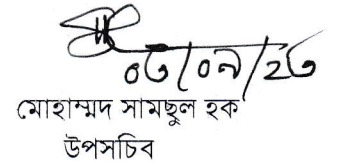 ০৩/০৯/২৩
মোহাম্মদ সামছুল হক
উপসচিব